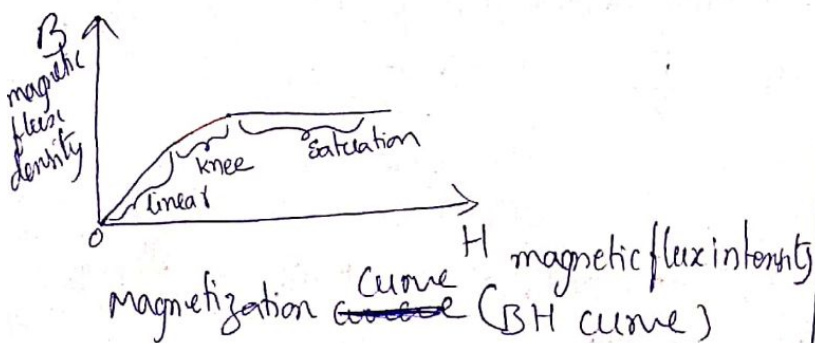 B
magnetic
flux
density
linear
knee
Saturation
O
H magnetic flux intensity
Magnetization Curve (BH curve)